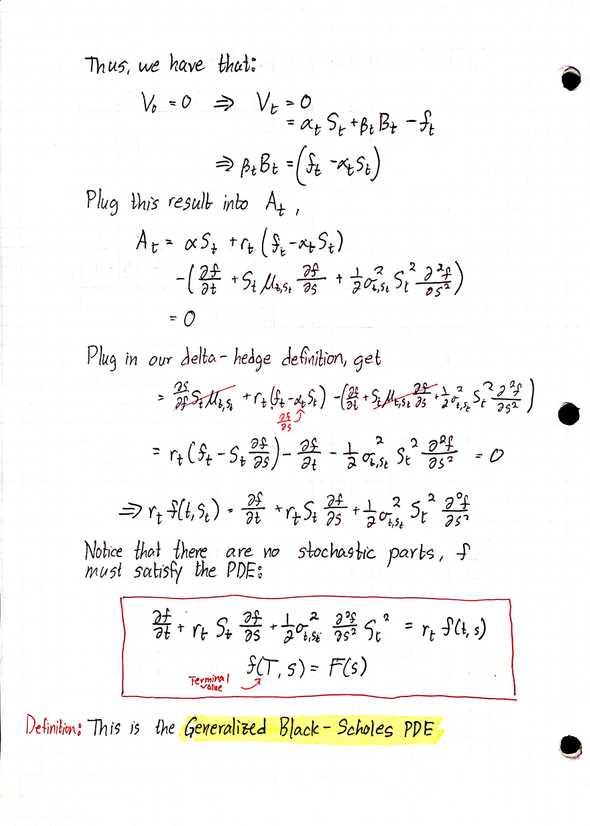 Thus, we have that:
V₀ = 0 ⇒ V_t = 0
= α_t S_t + β_t B_t - f_t
⇒ β_t B_t = (f_t - α_t S_t)
Plug this result into A_t,
A_t = α S_t + r_t (f_t - α_t S_t)
- (∂f/∂t + S_t μ_{t,S_t} ∂f/∂s + 1/2 σ²_{t,S_t} S_t² ∂²f/∂s²)
= 0
Plug in our delta-hedge definition, get
= ∂s/∂f S_t μ_{t,S_t} + r_t (f_t - α_t S_t) - (∂f/∂t + S_t μ_{t,S_t} ∂f/∂s + 1/2 σ²_{t,S_t} S_t² ∂²f/∂s²)
∂f/∂s
= r_t (f_t - S_t ∂f/∂s) - ∂f/∂t - 1/2 σ²_{t,S_t} S_t² ∂²f/∂s² = 0
⇒ r_t f(t, S_t) = ∂f/∂t + r_t S_t ∂f/∂s + 1/2 σ²_{t,S_t} S_t² ∂²f/∂s²
Notice that there are no stochastic parts, f
must satisfy the PDE:
∂f/∂t + r_t S_t ∂f/∂s + 1/2 σ²_{t,S_t} ∂²f/∂s² S_t² = r_t f(t, s)
f(T, s) = F(s)
Terminal
value
Definition: This is the Generalized Black-Scholes PDE